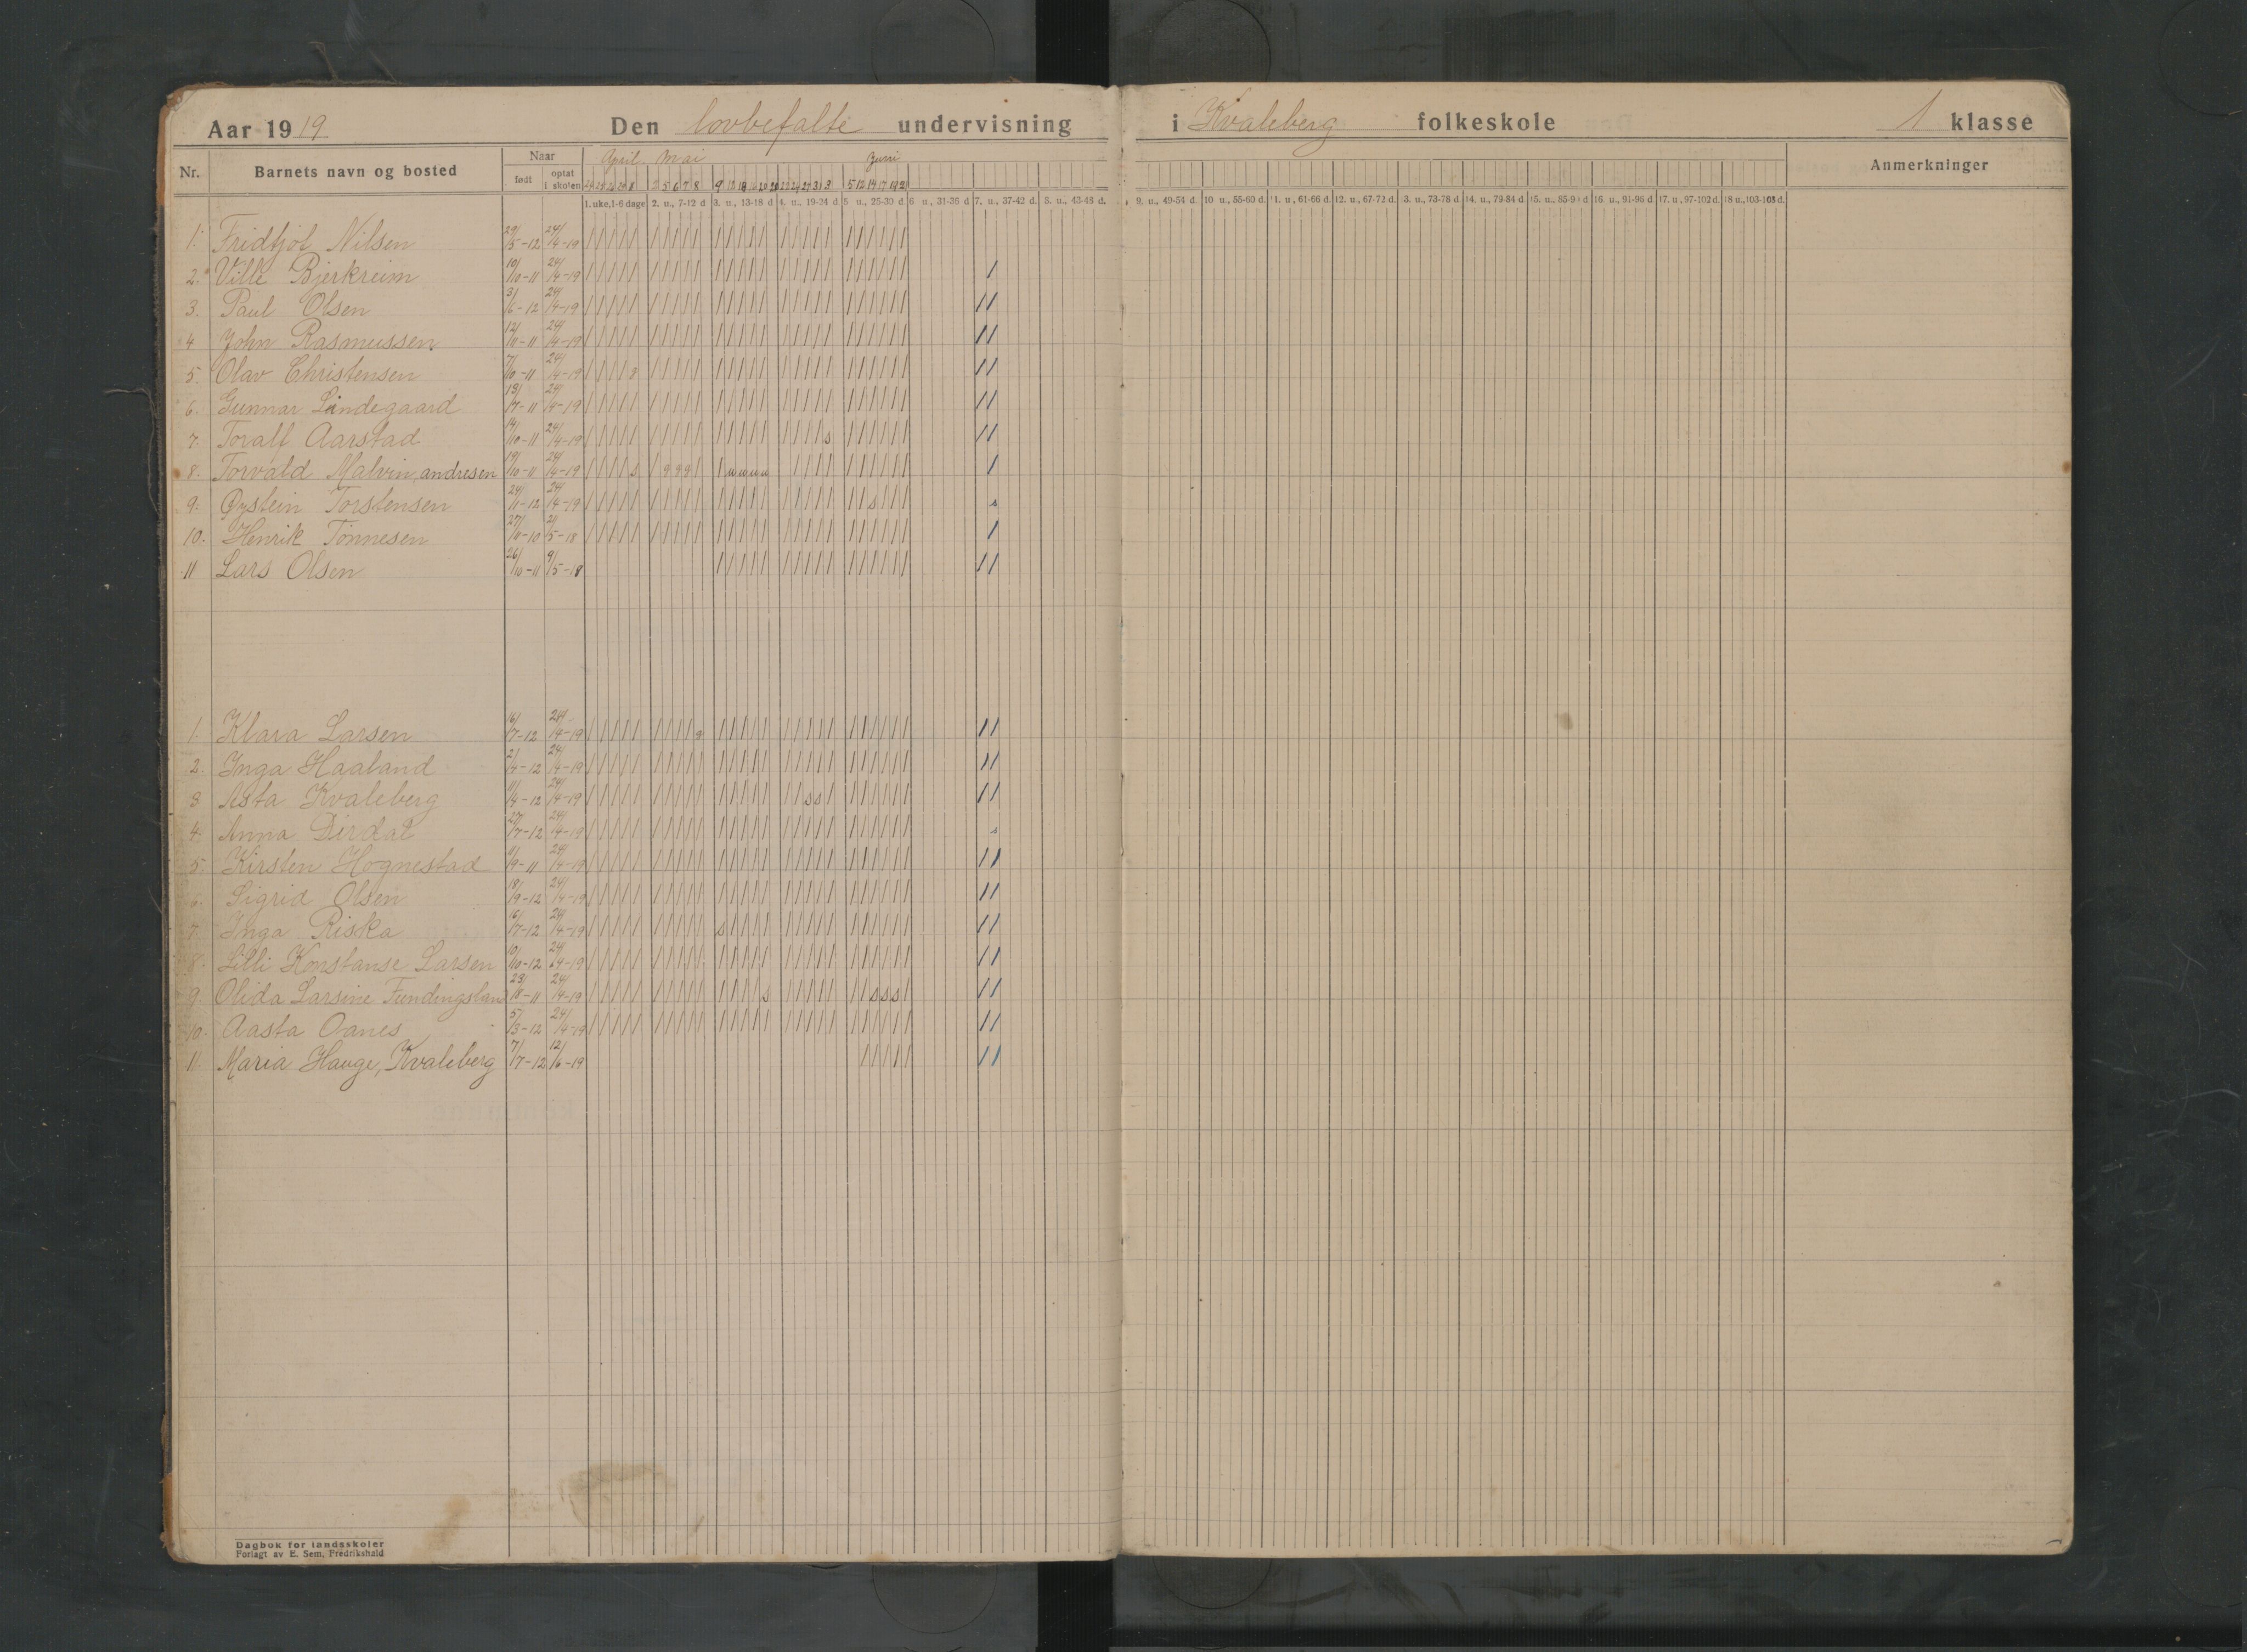 Aar 1919 Den lovbefalte undervisning i Kvaleberg folkeskole 1 klasse
Nr. Barnets navn og bosted Naar født optat i skolen April Mai Juni Anmerkninger
1. uke, 1-6 dage 2. u., 7-12 d 3. u., 13-18 d 4. u., 19-24 d. 5 u., 25-30 d. 6 u., 31-36 d 7. u., 37-42 d. 8. u., 43-48 d. 9. u., 49-54 d. 10 u., 55-60 d. 11. u., 61-66 d. 12. u., 67-72 d. 3. u., 73-78 d. 14. u., 79-84 d 15. u., 85-90 d 16. u., 91-96 d. 17. u., 97-102 d. 18 u., 103-108 d.
1. Fridtjof Nilsen 29/5-12 24/4-19
2. Ville Bjerkreim 10/10-11 24/4-19
3. Paul Olsen 3/6-12 24/4-19
4 John Rasmussen 24/4-19
5. Olav Christensen 7/10-11 24/4-19
6. Gunnar Lindegaard 24/4-19
7. Toralf Aarstad 14/10-11 24/4-19 s
8. Torvald Malvin, andresen 19/10-11 24/4-19 s
9. Øystein Torstensen 24/4-19 s s
10. Henrik Tønnesen
11 Lars Olsen 26/10-11 9/5-18
1. Klara Larsen 16/7-12 24/4-19
2. Inga Haaland 2/4-12 24/4-19
3 Asta Kvaleberg 11/4-12 24/4-19 s s
4. Anna Dirdal 27/7-12 24/4-19 s
5. Kirsten Hognestad 24/4-19
6. Sigrid Olsen 24/4-19
7. Inga Riska 16/7-12 24/4-19 s
8. Lilli Konstanse Larsen 10/10-12 24/4-19
9. Olida Larsine Fundingsland 24/4-19 s s s s
10. Aasta Oanes 5/3-12 24/4-19
11. Maria Hauge, Kvaleberg 7/7-12 12/6-19
Dagbok for landsskoler
Forlagt av E. Sem, Fredrikshald